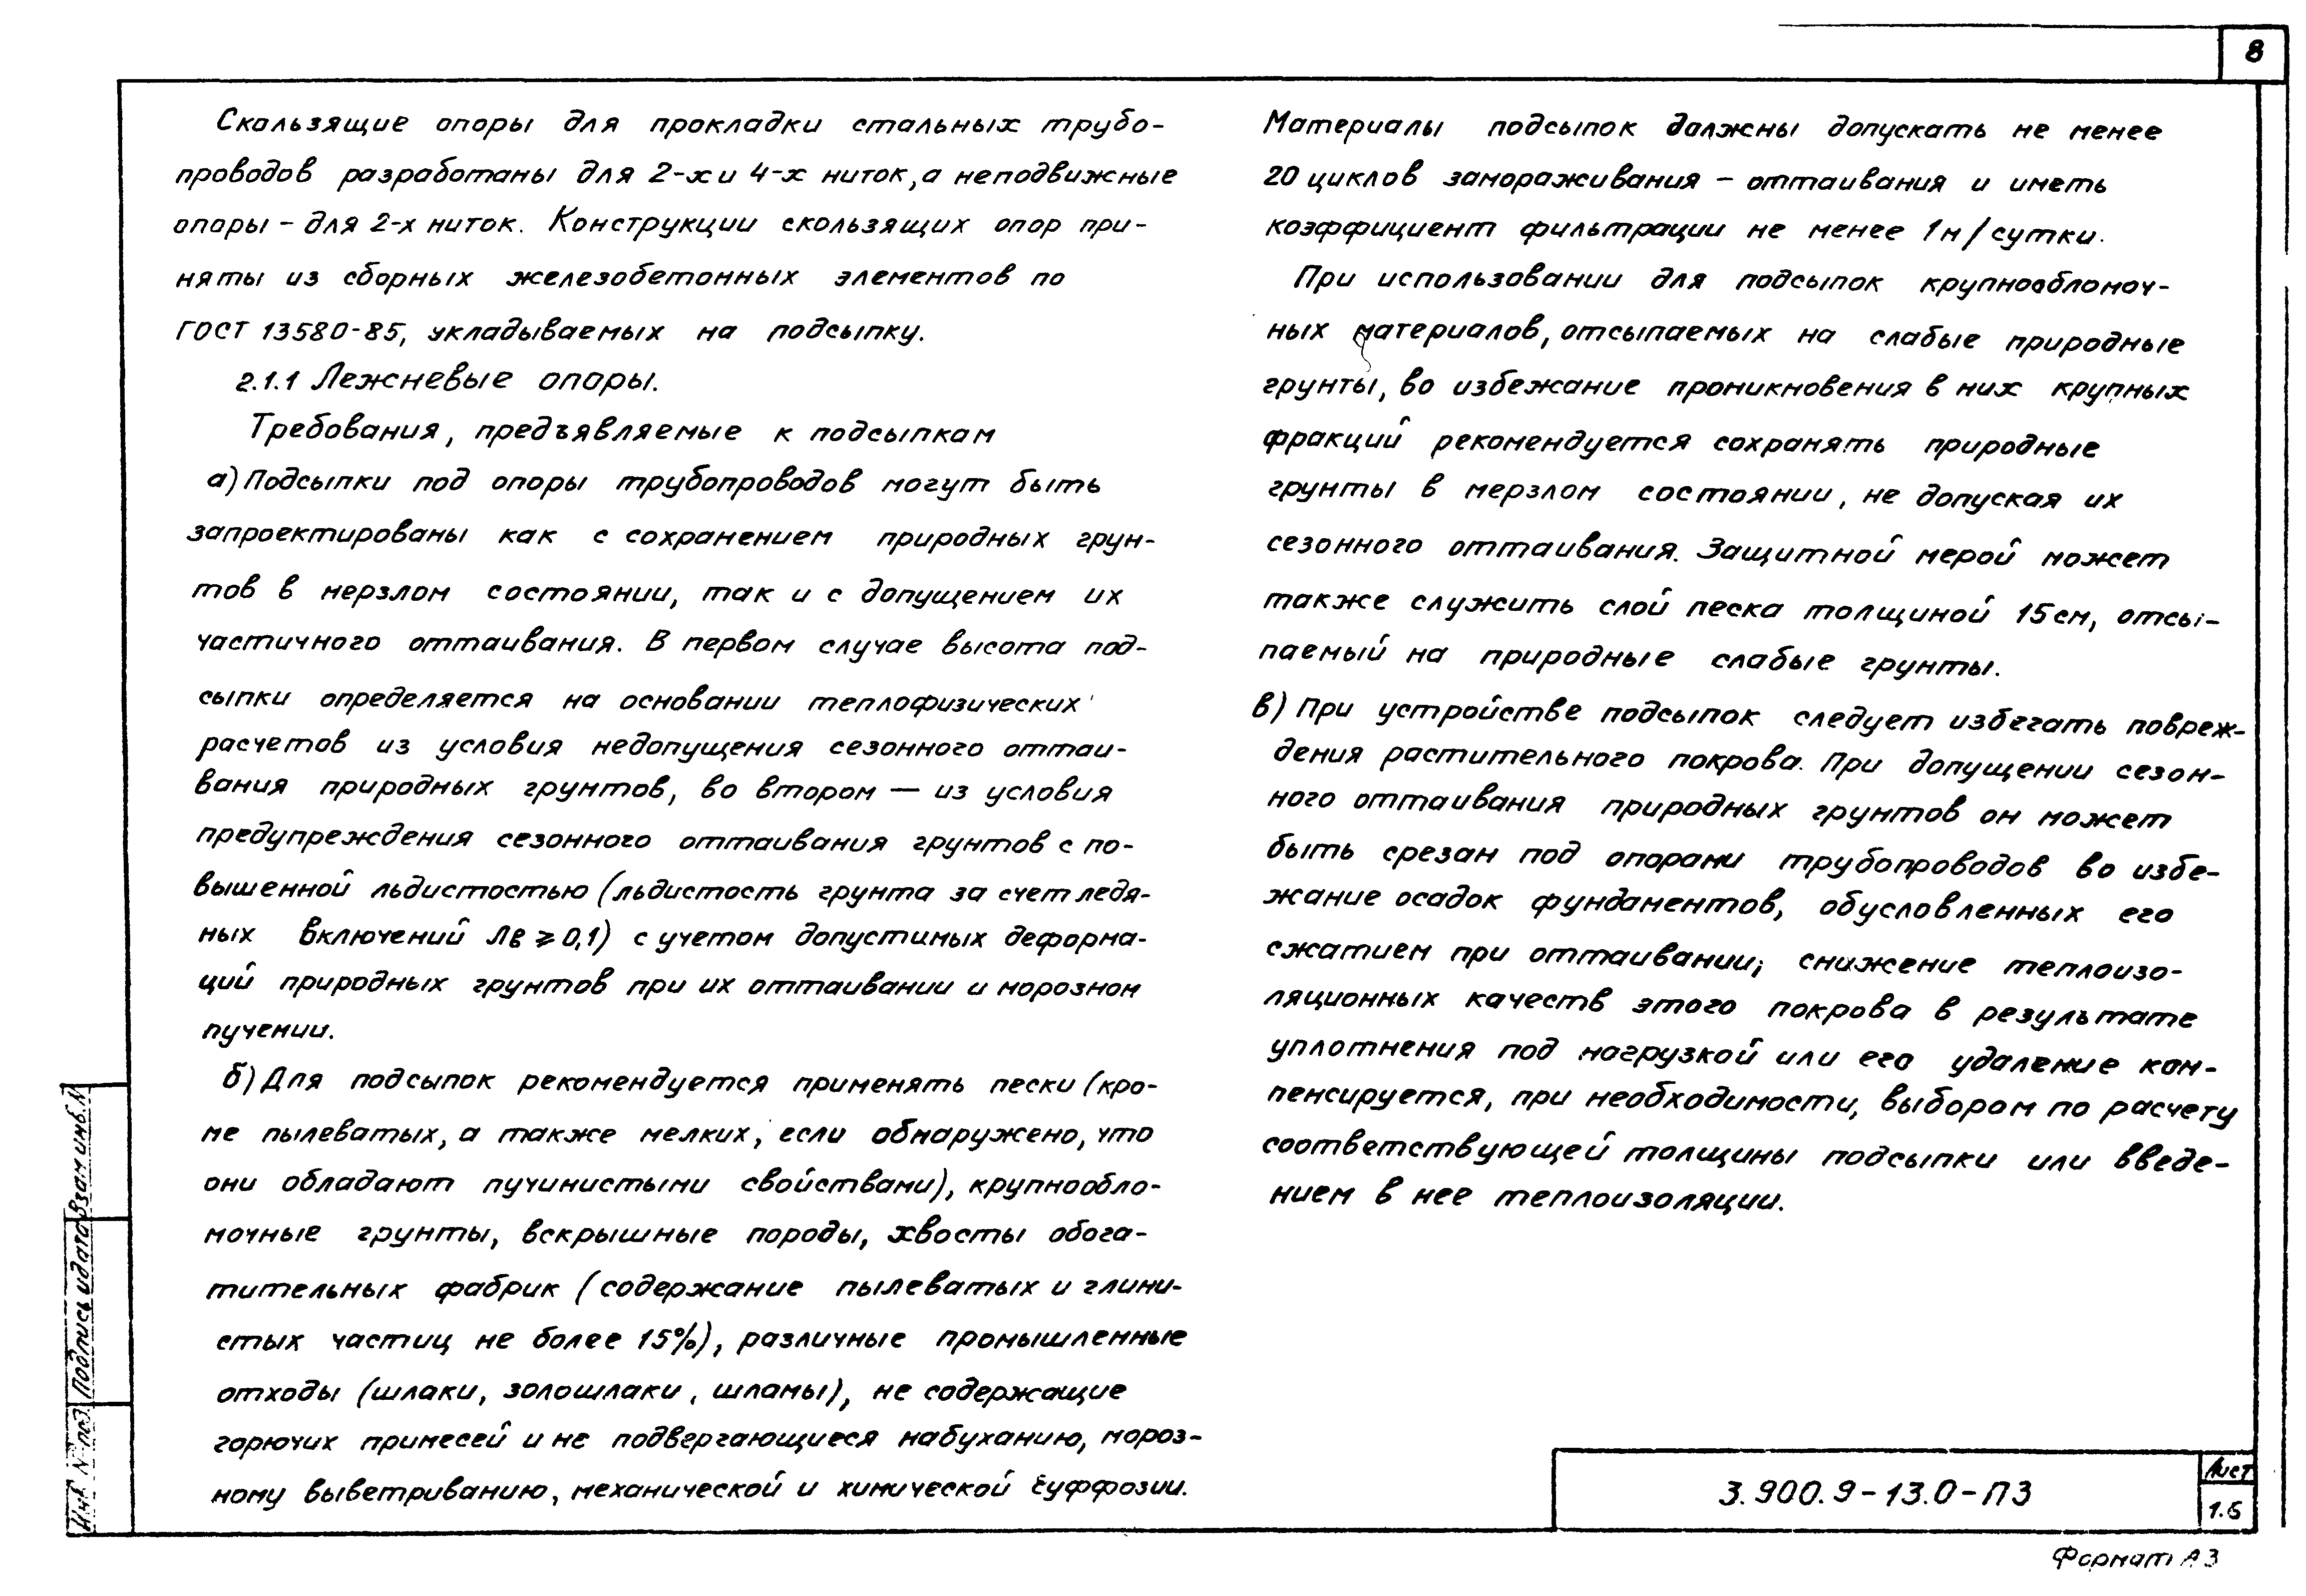 8
Скользящие опоры для прокладки стальных трубо-
проводов разработаны для 2-х и 4-х ниток, а неподвижные
опоры - для 2-х ниток. Конструкции скользящих опор при-
няты из сборных железобетонных элементов по
ГОСТ 13580-85, укладываемых на подсыпку.
2.1.1 Лежневые опоры.
Требования, предъявляемые к подсыпкам
а) Подсыпки под опоры трубопроводов могут быть
запроектированы как с сохранением природных грун-
тов в мерзлом состоянии, так и с допущением их
частичного оттаивания. В первом случае высота под-
сыпки определяется на основании теплофизических
расчетов из условия недопущения сезонного оттаи-
вания природных грунтов, во втором — из условия
предупреждения сезонного оттаивания грунтов с по-
вышенной льдистостью (льдистость грунта за счет ледя-
ных включений Лв ⩾ 0,1) с учетом допустимых деформа-
ций природных грунтов при их оттаивании и морозном
пучении.
б) Для подсыпок рекомендуется применять пески (кро-
ме пылеватых, а также мелких, если обнаружено, что
они обладают пучинистыми свойствами), крупнообло-
мочные грунты, вскрышные породы, хвосты обога-
тительных фабрик (содержание пылеватых и глини-
стых частиц не более 15%), различные промышленные
отходы (шлаки, золошлаки, шламы), не содержащие
горючих примесей и не подвергающиеся набуханию, мороз-
ному выветриванию, механической и химической суффозии.
Материалы подсыпок должны допускать не менее
20 циклов замораживания - оттаивания и иметь
коэффициент фильтрации не менее 1 м/сутки.
При использовании для подсыпок крупнообломоч-
ных материалов, отсыпаемых на слабые природные
грунты, во избежание проникновения в них крупных
фракций рекомендуется сохранять природные
грунты в мерзлом состоянии, не допуская их
сезонного оттаивания. Защитной мерой может
также служить слой песка толщиной 15 см, отсы-
паемый на природные слабые грунты.
в) При устройстве подсыпок следует избегать повреж-
дения растительного покрова. При допущении сезон-
ного оттаивания природных грунтов он может
быть срезан под опорами трубопроводов во избе-
жание осадок фундаментов, обусловленных его
сжатием при оттаивании; снижение теплоизо-
ляционных качеств этого покрова в результате
уплотнения под нагрузкой или его удаление ком-
пенсируется, при необходимости, выбором по расчету
соответствующей толщины подсыпки или введе-
нием в нее теплоизоляции.
Взам инв. N
Подпись и дата
Инв. N под.
3.900.9-13.0-ПЗ
Лист
1.6
Формат А3